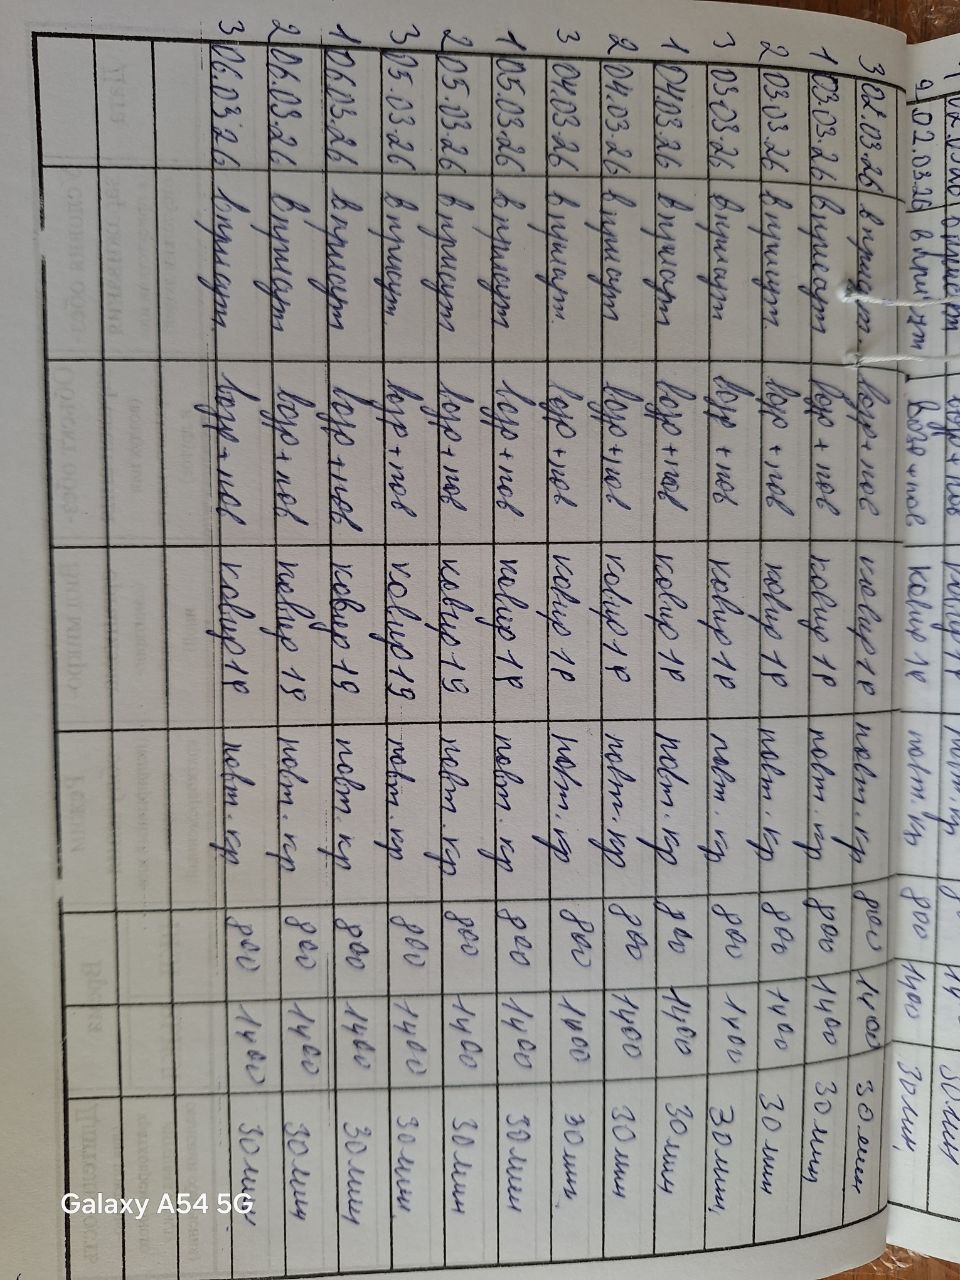 9 02.03.26 в присут возд+пов ковид 19 повт. кр 800 1400 30 мин
3 02.03.26 в присут. возд+пов ковид 19 повт. кр 800 1400 30 мин
1 03.03.26 в присут возд+пов ковид 19 повт. кр 800 1400 30 мин
2 03.03.26 в присут. возд+пов ковид 19 повт. кр 800 1400 30 мин
3 03.03.26 в присут возд+пов ковид 19 повт. кр 800 1400 30 мин,
1 04.03.26 в присут возд+пов ковид 19 повт. кр 800 1400 30 мин
2 04.03.26 в присут возд+пов ковид 19 повт. кр 800 1400 30 мин
3 04.03.26 в присут. возд+пов ковид 19 повт. кр 800 1400 30 мин.
1 05.03.26 в присут возд+пов ковид 19 повт. кр 800 1400 30 мин
2 05.03.26 в присут возд+пов ковид 19 повт. кр 800 1400 30 мин
3 05.03.26 в присут. возд+пов ковид 19 повт. кр 800 1400 30 мин.
1 06.03.26 в присут возд+пов ковид 19 повт. кр 800 1400 30 мин
2 06.03.26 в присут возд+пов ковид 19 повт. кр 800 1400 30 мин
3 06.03.26 в присут возд+пов ковид 19 повт. кр 800 1400 30 мин
Galaxy A54 5G